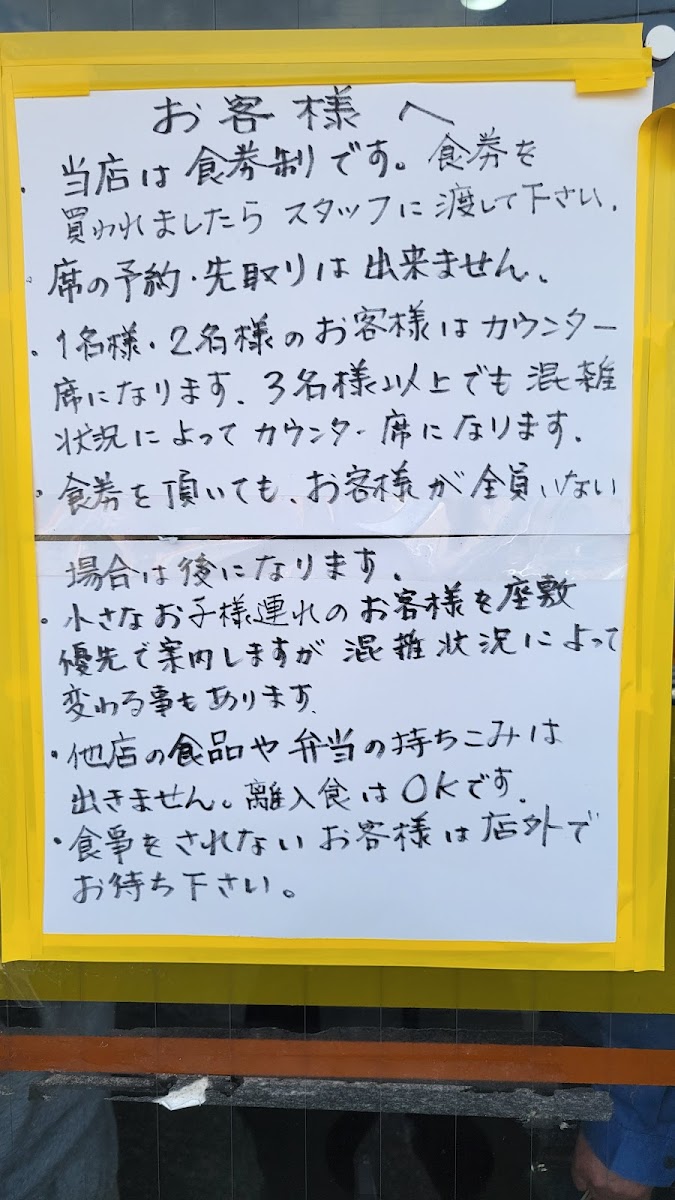 お客様へ
・当店は食券制です。食券を
買われましたらスタッフに渡して下さい.
・席の予約・先取りは出来ません.
・1名様・2名様のお客様はカウンター
席になります.3名様以上でも混雑
状況によってカウンター席になります.
・食券を頂いても、お客様が全員いない
場合は後になります.
・小さなお子様連れのお客様を座敷
優先で案内しますが混雑状況によって
変わる事もあります.
・他店の食品や弁当の持ちこみは
出きません。離入食はOKです.
・食事をされないお客様は店外で
お待ち下さい。